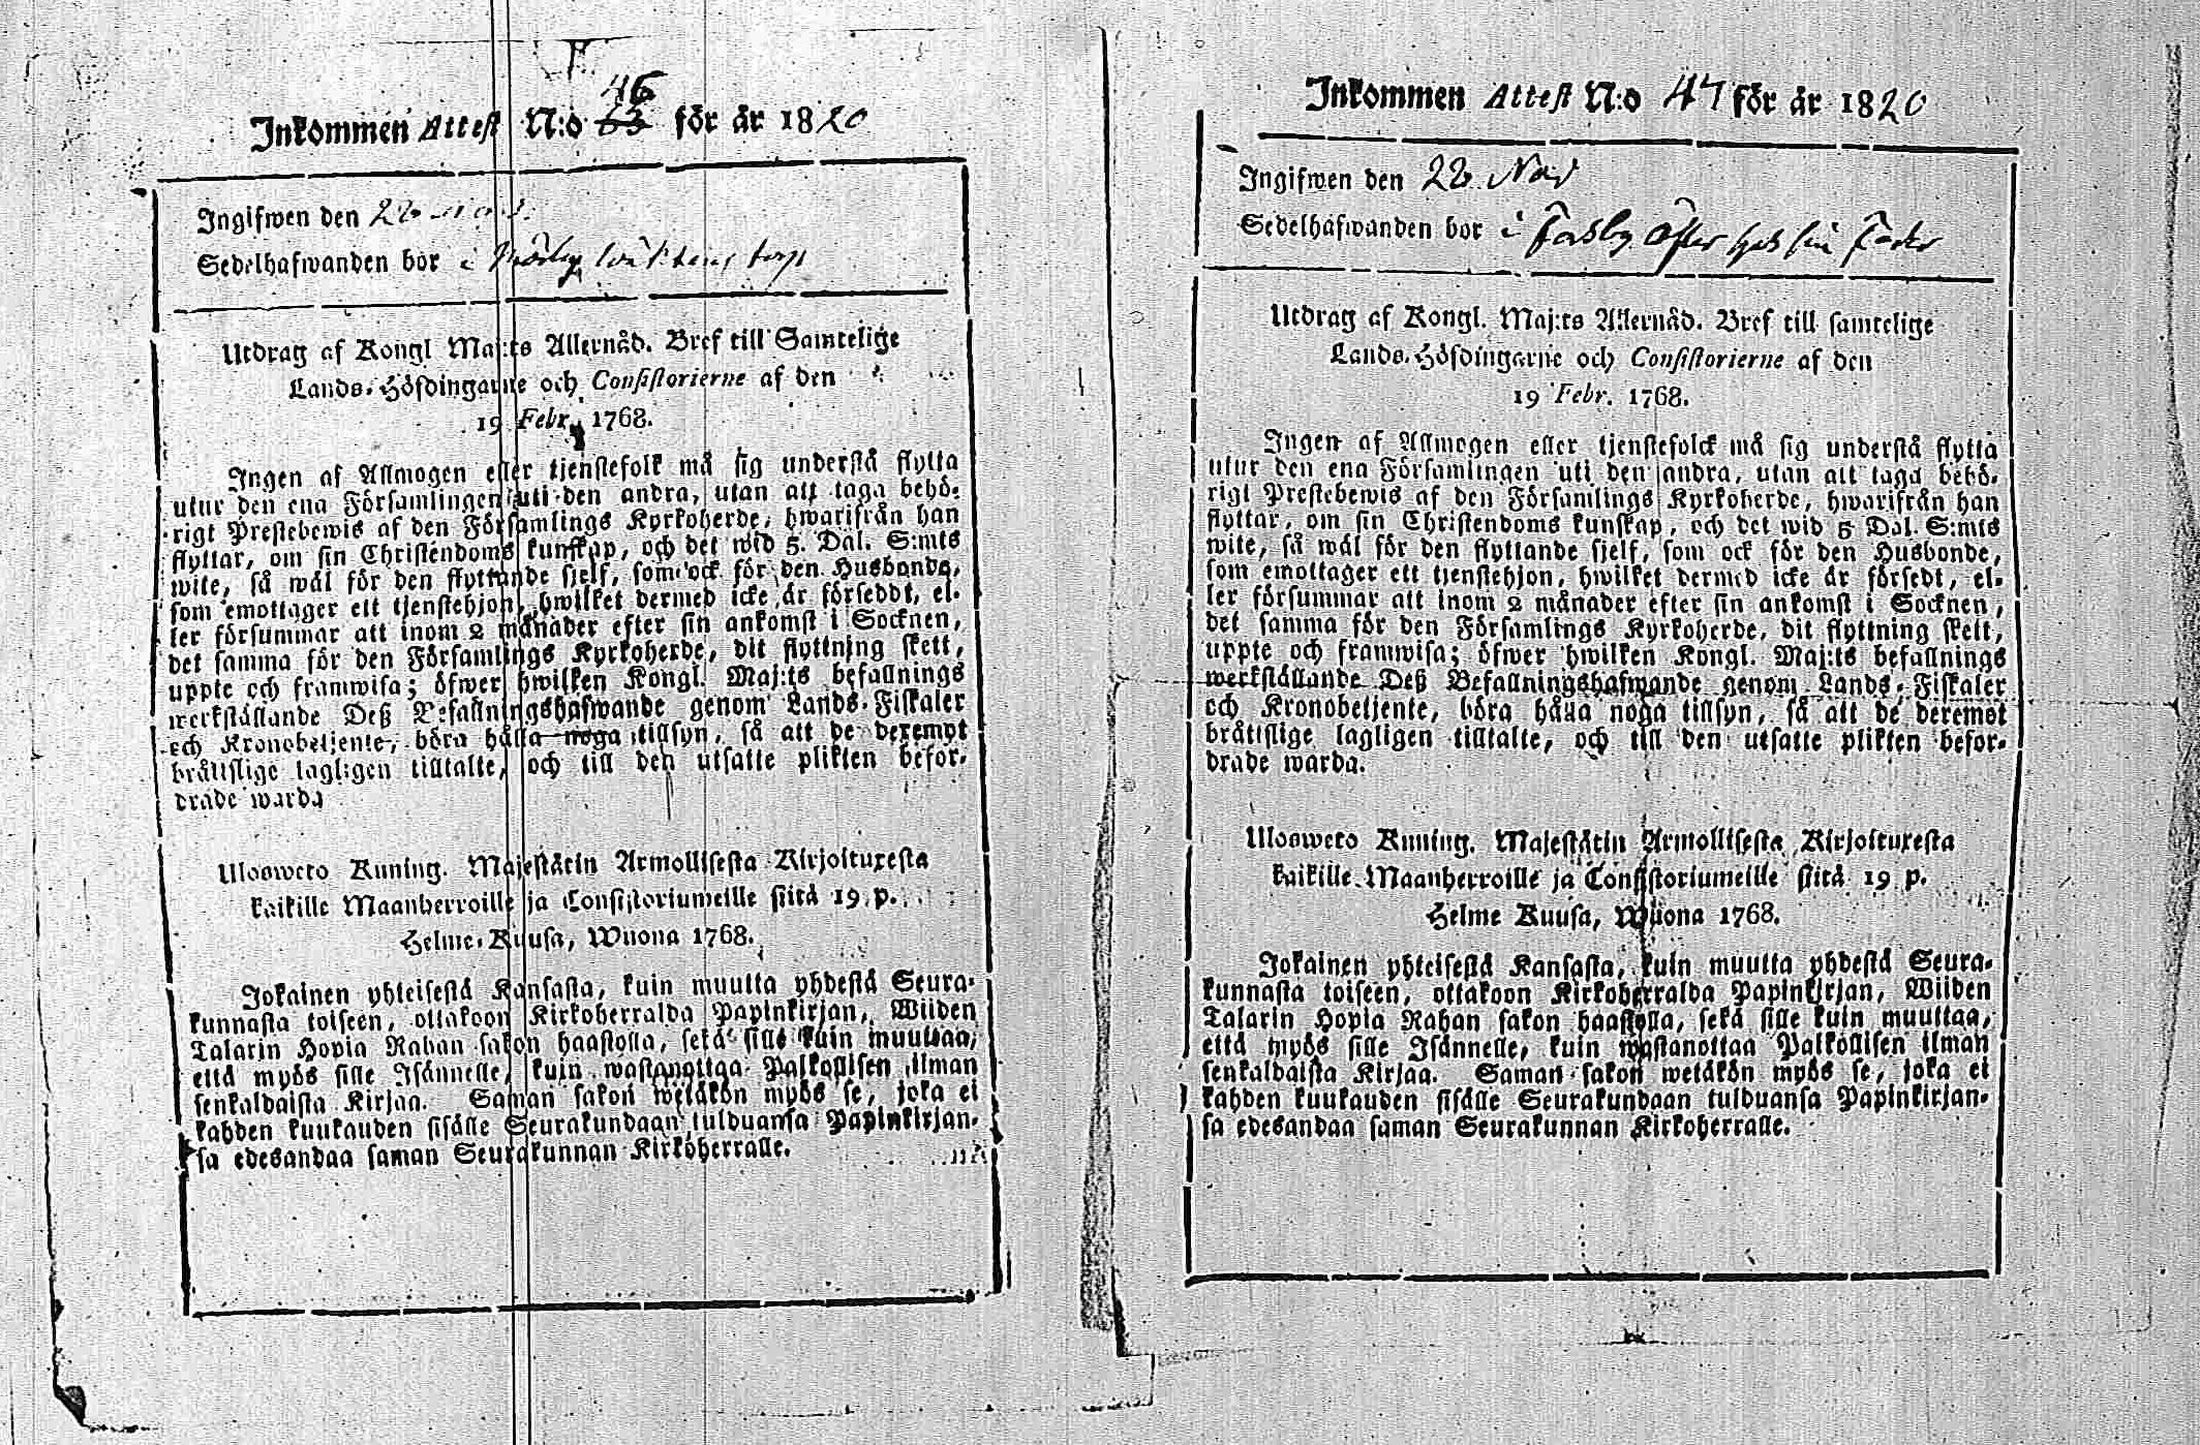 Inkommen Attest N:o 46 för år 1820
Ingifwen den 22
Sedelhafwanden bor i
Utdrag af Kongl Maj:ts Allernåd. Bref till Samtelige
Lands-Höfdingarne och Consistorierne af den
19 Febr. 1768.
Ingen af Allmogen eller tjenstefolk må sig understå flytta
utur den ena Församlingen uti den andra, utan att taga behö-
rigt Prestebewis af den Församlings Kyrkoherde, hwarifrån han
flyttar, om sin Christendoms kunskap, och det wid 5. Dal. S:mts
wite, så wäl för den flyttande sjelf, som ock för den Husbonde,
som emottager ett tjenstehjon, hwilket dermed icke är förseddt, el-
ler försummar att inom 2 månader efter sin ankomst i Socknen,
det samma för den Församlings Kyrkoherde, dit flyttning skett,
uppte och framwisa; öfwer hwilken Kongl. Maj:ts befallnings
werkställande Deß Befallningshafwande genom Lands-Fiskaler
och Kronobetjente, böra hålla noga tillsyn, så att de deremot
bråttslige lagligen tilltalte, och till den utsatte plikten befor-
drade warda
Ulosweto Kuning. Majestätin Armollisesta Kirjoituxesta
kaikille Maanherroille ja Consistoriumeille siitä 19 p.
Helme-Kuusa, Wuona 1768.
Jokainen yhteisestä Kansasta, kuin muutta yhdestä Seura-
kunnasta toiseen, ottakoon Kirkoherralda Papinkirjan, Wiiden
Talarin Hopia Rahan sakon haastolla, sekä sille kuin muuttaa,
että myös sille Isännelle, kuin wastanottaa Palkollisen ilman
senkaldaista Kirjaa. Saman sakon wetäkön myös se, joka ei
kahden kuukauden sisälle Seurakundaan tulduansa Papinkirjan-
sa edesandaa saman Seurakunnan Kirkoherralle.
Inkommen Attest N:o 47 för år 1820
Ingifwen den 22 Nov
Sedelhafwanden bor i Forsby efter hos sin Fader
Utdrag af Kongl. Maj:ts Allernåd. Bref till samtelige
Lands-Höfdingarne och Consistorierne af den
19 Febr. 1768.
Ingen af Allmogen eller tjenstefolck må sig understå flytta
utur den ena Församlingen uti den andra, utan att taga behö-
rigt Prestebewis af den Församlings Kyrkoherde, hwarifrån han
flyttar, om sin Christendoms kunskap, och det wid 5 Dal. S:mts
wite, så wäl för den flyttande sjelf, som ock för den Husbonde,
som emottager ett tjenstehjon, hwilket dermed icke är försedt, el-
ler försummar att inom 2 månader efter sin ankomst i Socknen,
det samma för den Församlings Kyrkoherde, dit flyttning skett,
uppte och framwisa; öfwer hwilken Kongl. Maj:ts befallnings
werkställande Deß Befallningshafwande genom Lands-Fiskaler
och Kronobetjente, böra hålla noga tillsyn, så att de deremot
bråttslige lagligen tilltalte, och till den utsatte plikten befor-
drade warda.
Ulosweto Kuning. Majestätin Armollisesta Kirjoituxesta
kaikille Maanherroille ja Consistoriumeille siitä 19 p.
Helme Kuusa, Wuona 1768.
Jokainen yhteisestä Kansasta, kuin muutta yhdestä Seura-
kunnasta toiseen, ottakoon Kirkoherralda Papinkirjan, Wiiden
Talarin Hopia Rahan sakon haastolla, sekä sille kuin muuttaa,
että myös sille Isännelle, kuin wastanottaa Palkollisen ilman
senkaldaista Kirjaa. Saman sakon wetäkön myös se, joka ei
kahden kuukauden sisälle Seurakundaan tulduansa Papinkirjan-
sa edesandaa saman Seurakunnan Kirkoherralle.